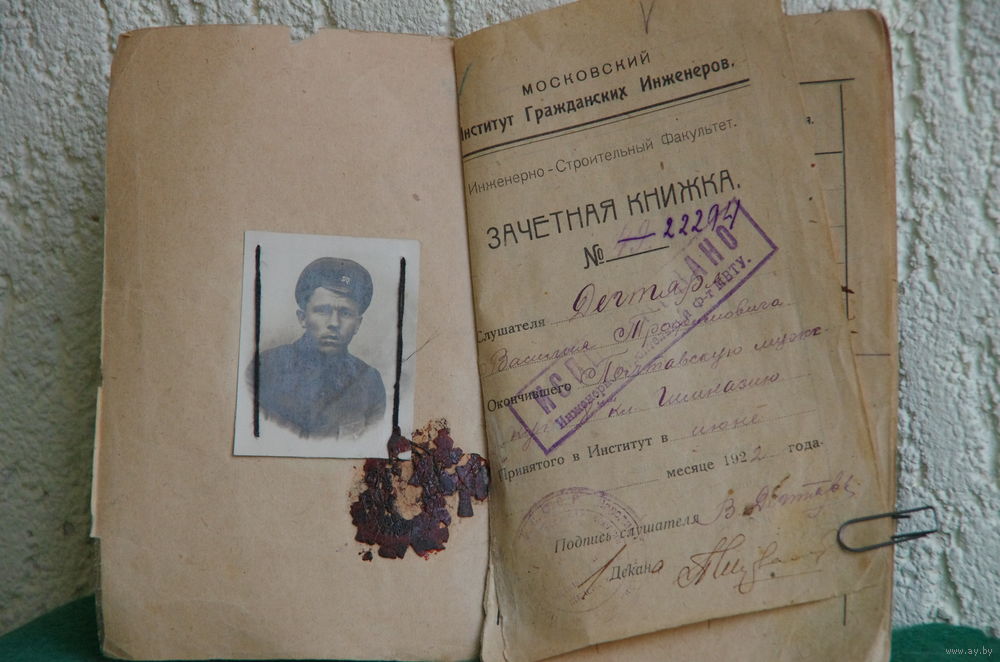 МОСКОВСКИЙ
Институт Гражданских Инженеров.
Инженерно-Строительный Факультет.
ЗАЧЕТНАЯ КНИЖКА.
№ 22294
Слушателя Дегтяря
Василия Трофимовича
Окончившего Полтавскую мужск.
кл. Гимназию
Принятого в Институт в июне
месяце 1922 года.
Подпись слушателя В. Дегтярь
Декана
Инженерно-Строительный Ф-т МВТУ.
www.ay.by